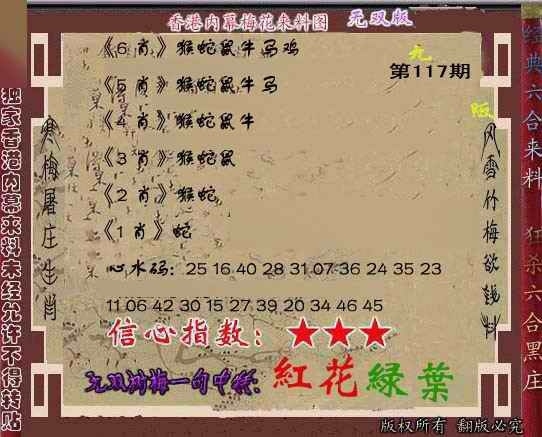 香港内幕梅花来料图 无双版
《6 肖》猴蛇鼠牛马鸡
无
第117期
《5 肖》猴蛇鼠牛马
版
《4 肖》猴蛇鼠牛
《3 肖》猴蛇鼠
《2 肖》猴蛇
《1 肖》蛇
心水码：25 16 40 28 31 07 36 24 35 23
11 06 42 30 15 27 39 20 34 46 45
信心指数：★★★
一句中特：紅花緑葉
版权所有 翻版必究
独家香港内幕来料未经允许不得转贴
寒梅屠庄生肖
风雪竹梅欲钱料
经典六合来料 狂杀六合黑庄